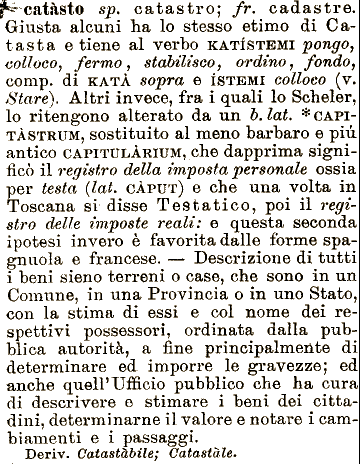 catàsto sp. catastro; fr. cadastre.
Giusta alcuni ha lo stesso etimo di Ca-
tasta e tiene al verbo KATÍSTEMI pongo,
colloco, fermo, stabilisco, ordino, fondo,
comp. di KATÀ sopra e ISTEMI colloco (v.
Stare). Altri invece, fra i quali lo Scheler,
lo ritengono alterato da un b. lat. *CAPI-
TÀSTRUM, sostituito al meno barbaro e più
antico CAPITULÀRIUM, che dapprima signi-
ficò il registro della imposta personale ossia
per testa (lat. CÀPUT) e che una volta in
Toscana si disse Testatico, poi il regi-
stro delle imposte reali: e questa seconda
ipotesi invero è favorita dalle forme spa-
gnuola e francese. — Descrizione di tutti
i beni sieno terreni o case, che sono in un
Comune, in una Provincia o in uno Stato,
con la stima di essi e col nome dei re-
spettivi possessori, ordinata dalla pub-
blica autorità, a fine principalmente di
determinare ed imporre le gravezze; ed
anche quell'Ufficio pubblico che ha cura
di descrivere e stimare i beni dei citta-
dini, determinarne il valore e notare i cam-
biamenti e i passaggi.
Deriv. Catastàbile; Catastàle.